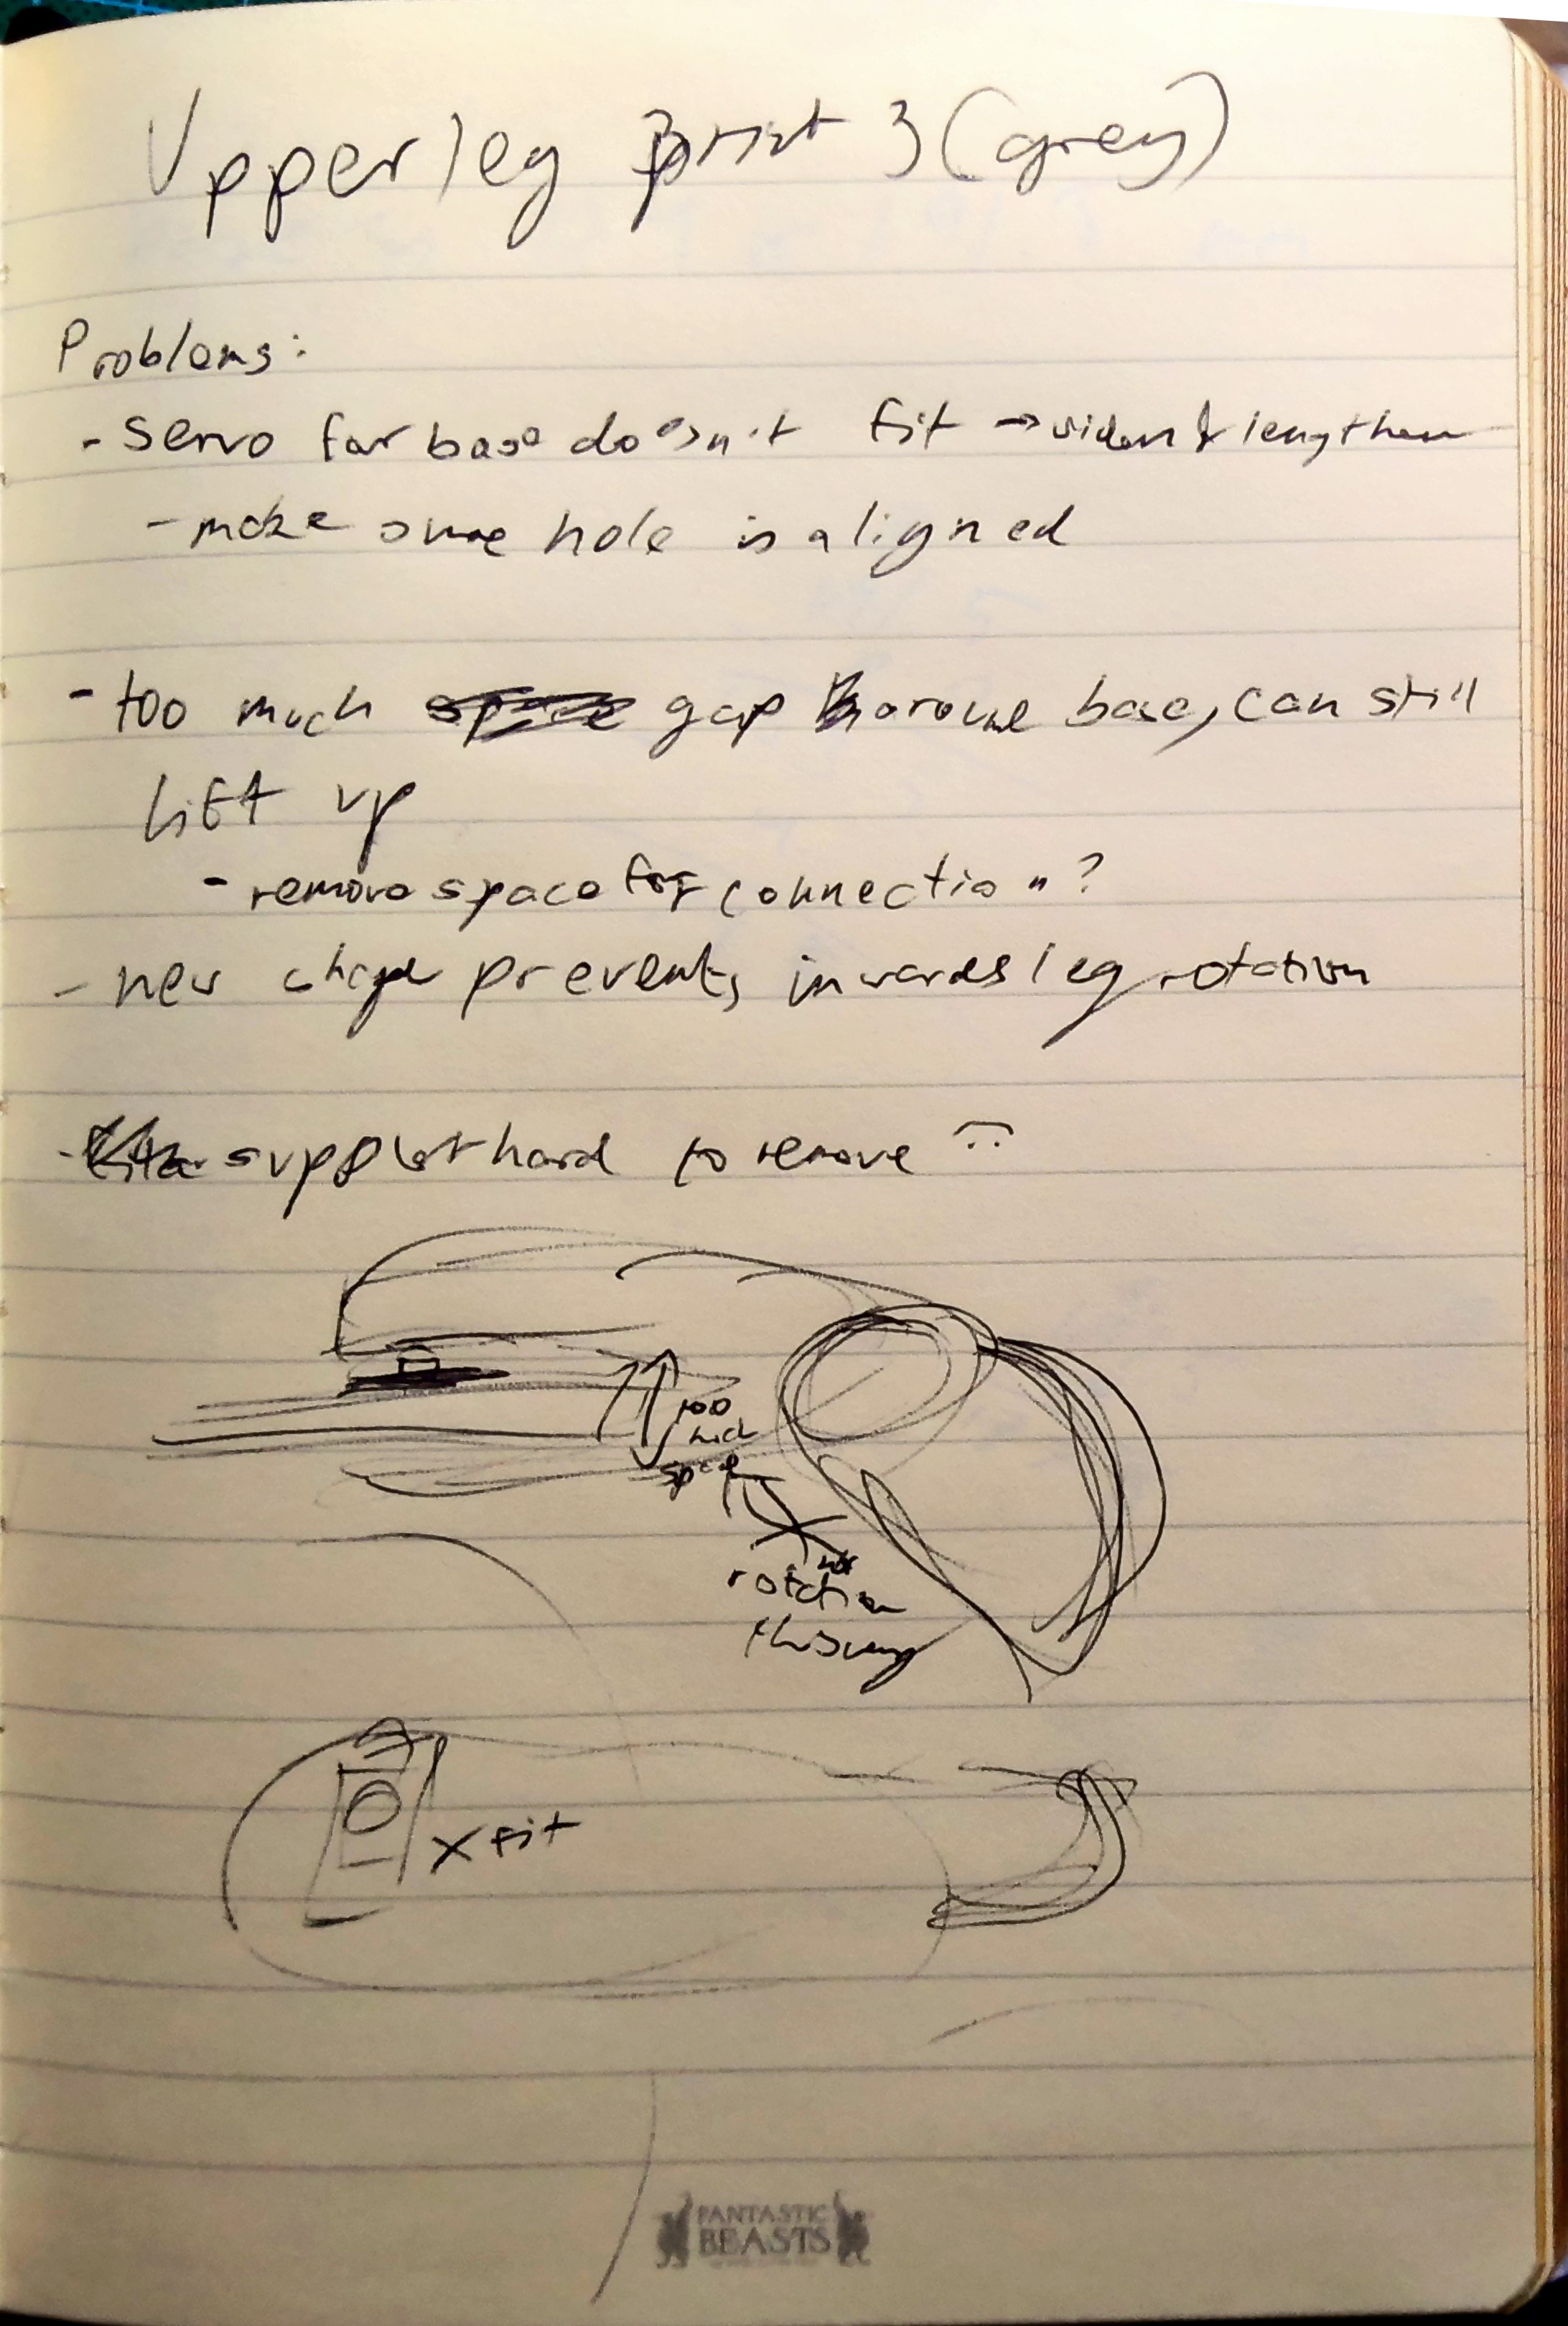 Upper leg print 3 (grey)
Problems:
- servo for base doesn't fit → widen & lengthen
- make sure hole is aligned
- too much gap around base, can still
lift up
- remove space for connection?
- new shape prevents inwards leg rotation
- support hard to remove :(
too
much
space
no
rotation
this way
X fit
FANTASTIC
BEASTS